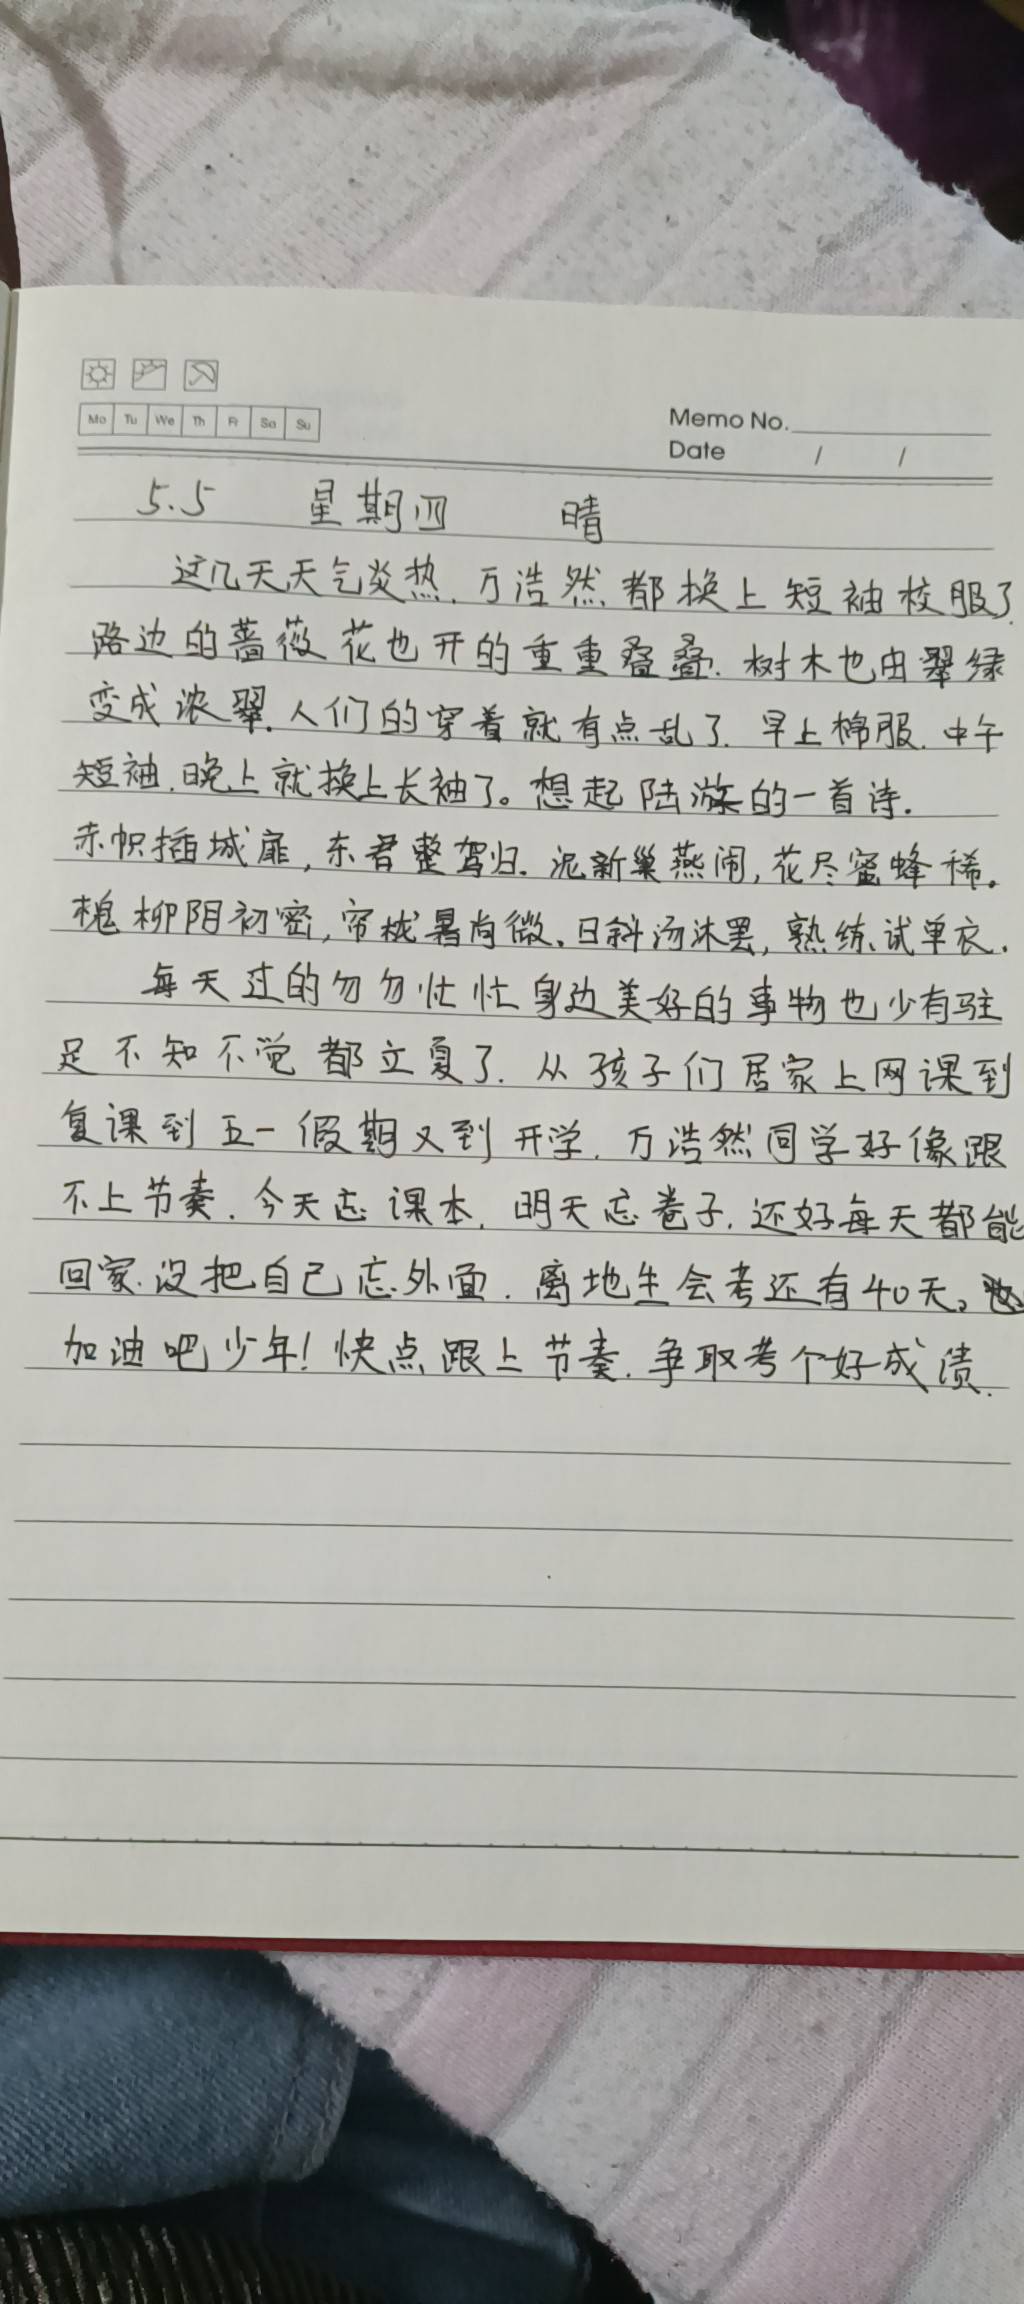 Mo Tu We Th Fr Sa Su
Memo No.
Date / /
5.5 星期四 晴
这几天天气炎热.万浩然都换上短袖校服了.
路边的蔷薇花也开的重重叠叠.树木也由翠绿
变成浓翠.人们的穿着就有点乱了.早上棉服.中午
短袖.晚上就换上长袖了。想起陆游的一首诗.
赤帜插城扉,东君整驾归.泥新巢燕闹,花尽蜜蜂稀。
槐柳阴初密,帘栊暑尚微.日斜汤沐罢,熟练试单衣.
每天过的匆匆忙忙身边美好的事物也少有驻
足不知不觉都立夏了.从孩子们居家上网课到
复课到五一假期又到开学.万浩然同学好像跟
不上节奏.今天忘课本.明天忘卷子.还好每天都能
回家.没把自己忘外面.离地生会考还有40天。
加油吧少年!快点跟上节奏.争取考个好成绩.